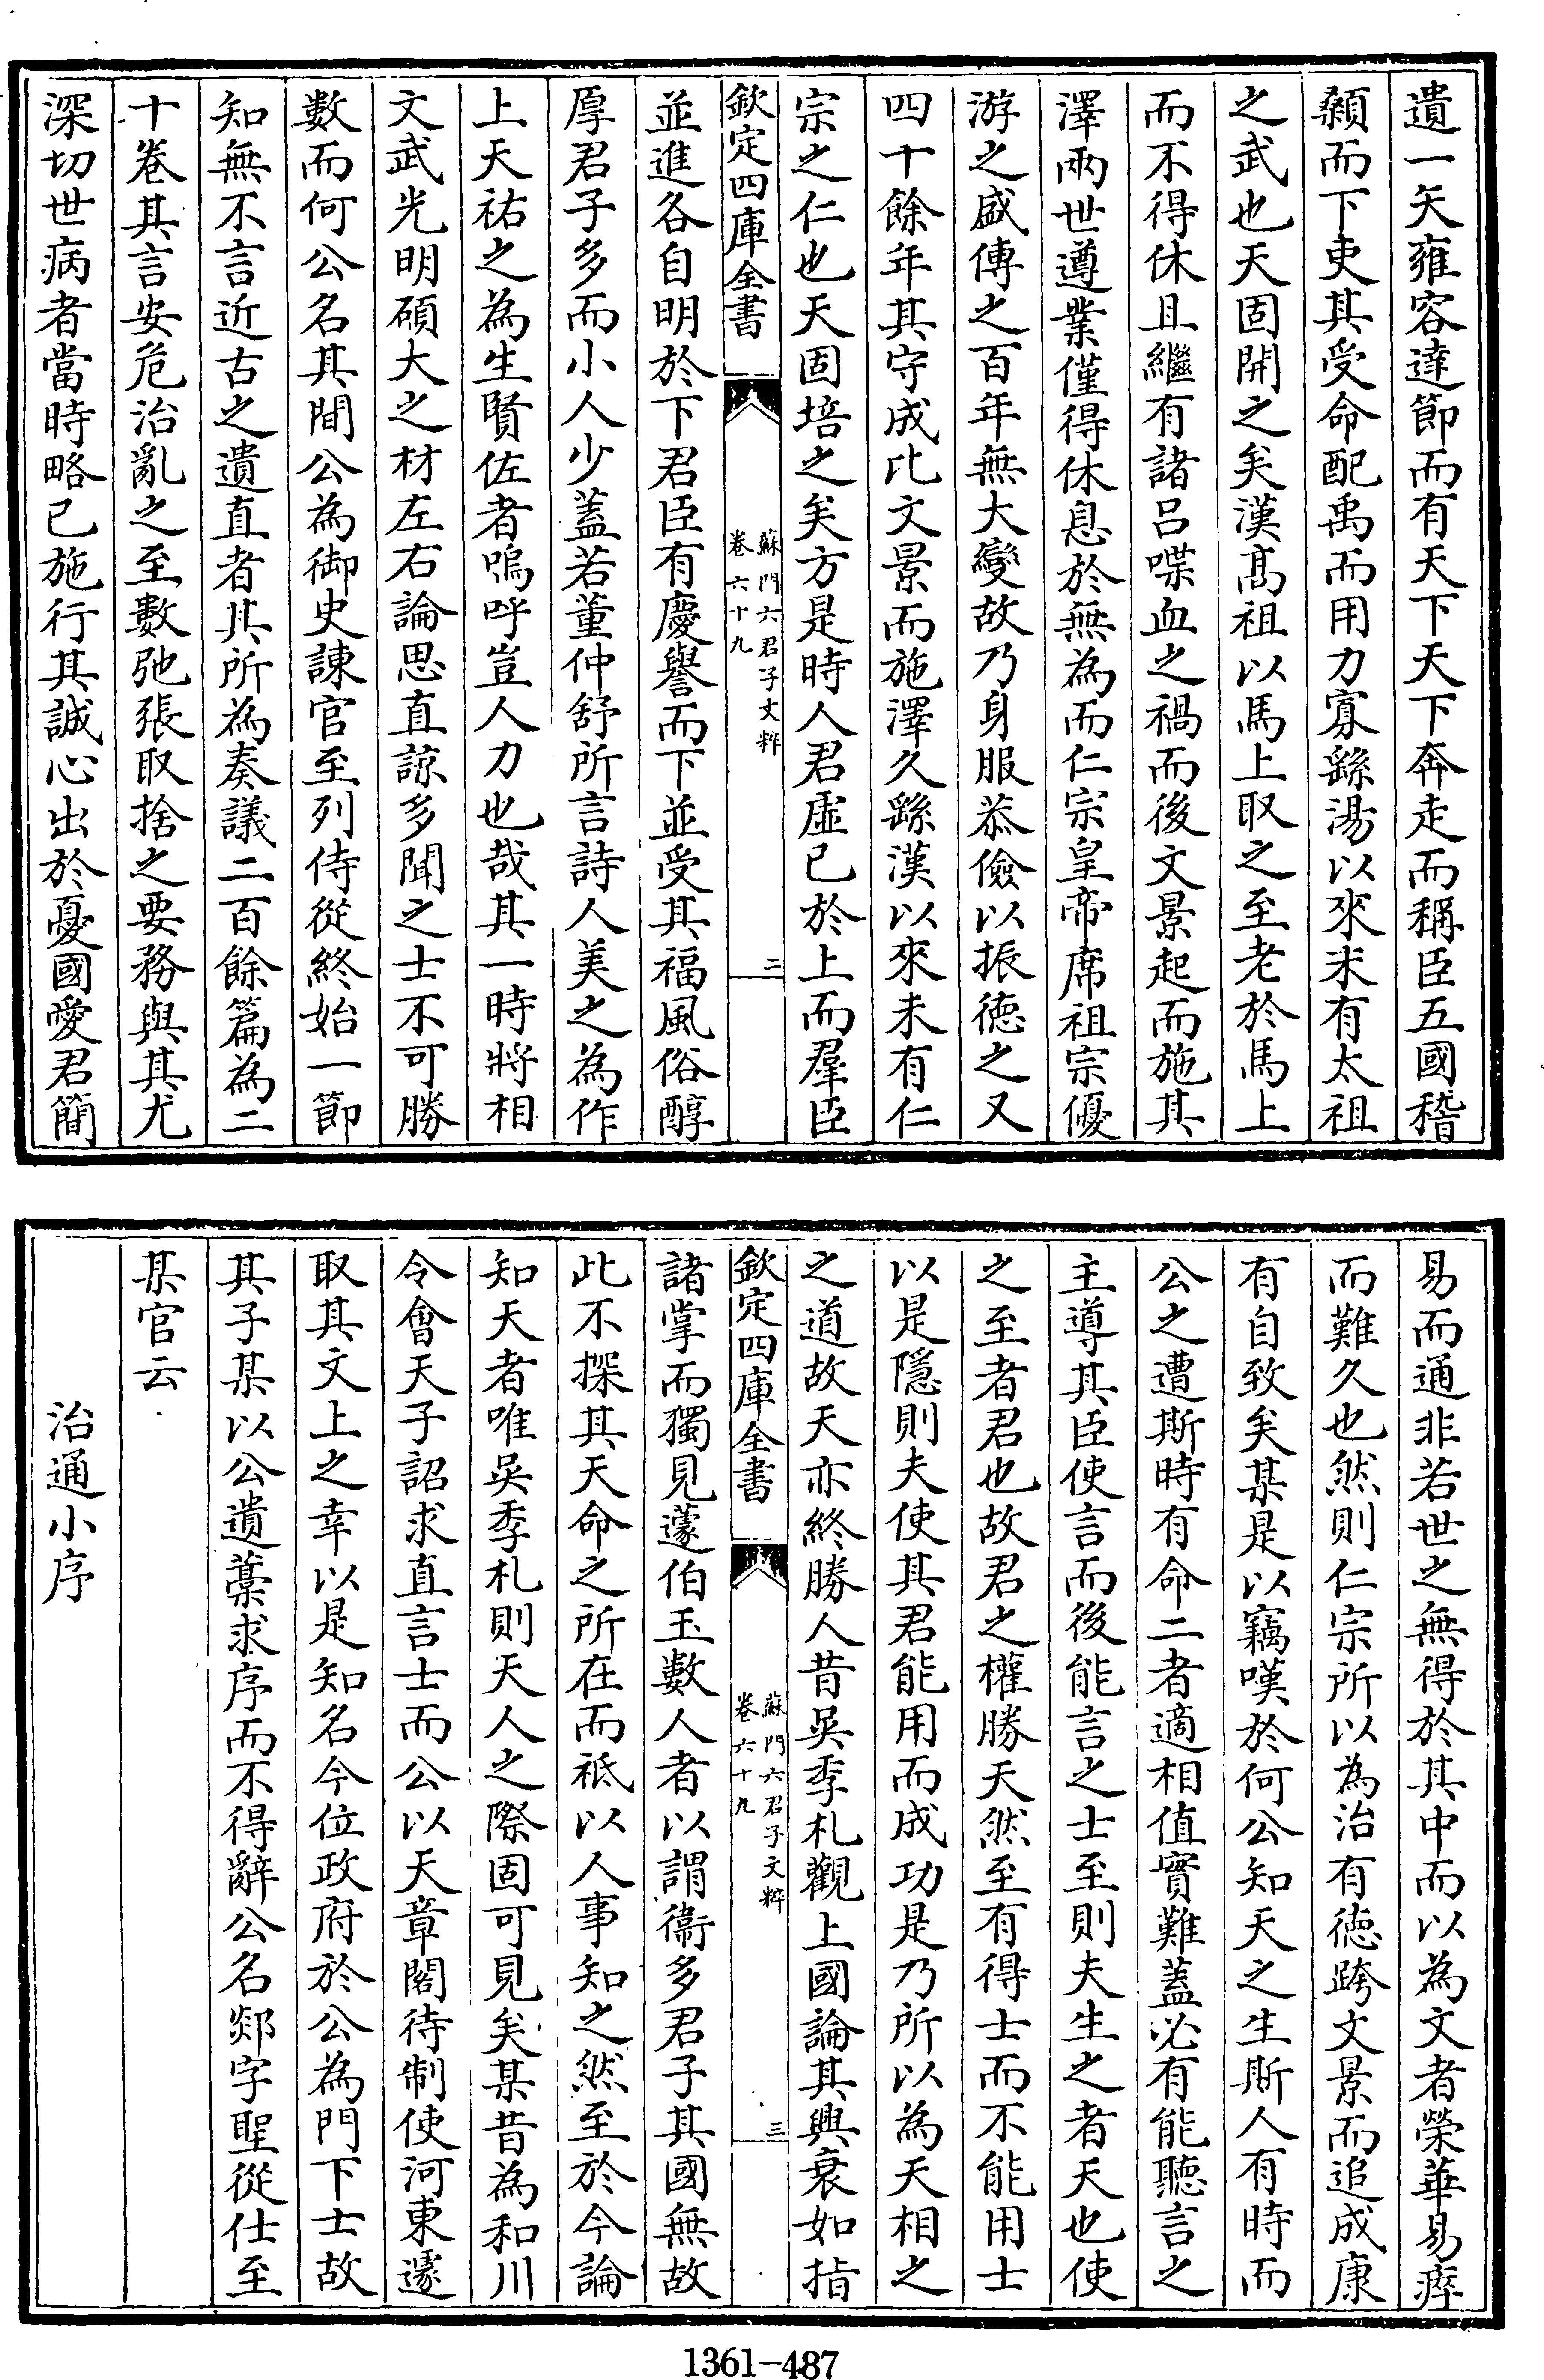 遺一矢雍容達節而有天下天下奔走而稱臣五國稽
顙而下吏其受命配禹而用力寡繇湯以來未有太祖
之武也天固開之矣漢髙祖以馬上取之至老於馬上
而不得休且繼有諸吕喋血之禍而後文景起而施其
澤兩世遵業僅得休息於無為而仁宗皇帝席祖宗優
游之盛傳之百年無大變故乃身服恭儉以振徳之又
四十餘年其守成比文景而施澤久繇漢以來未有仁
宗之仁也天固培之矣方是時人君虚已於上而羣臣
欽定四庫全書
蘇門六君子文粹
卷六十九
二
並進各自明於下君臣有慶譽而下並受其福風俗醇
厚君子多而小人少蓋若董仲舒所言詩人美之為作
上天祐之為生賢佐者嗚呼豈人力也哉其一時將相
文武光明碩大之材左右論思直諒多聞之士不可勝
數而何公名其間公為御史諫官至列侍從終始一節
知無不言近古之遺直者其所為奏議二百餘篇為二
十卷其言安危治亂之至數弛張取捨之要務與其尤
深切世病者當時略已施行其誠心出於憂國愛君簡
易而通非若世之無得於其中而以為文者榮華易瘁
而難久也然則仁宗所以為治有徳跨文景而追成康
有自致矣某是以竊嘆於何公知天之生斯人有時而
公之遭斯時有命二者適相值實難蓋必有能聽言之
主導其臣使言而後能言之士至則夫生之者天也使
之至者君也故君之權勝天然至有得士而不能用士
以是隱則夫使其君能用而成功是乃所以為天相之
之道故天亦終勝人昔吳季札觀上國論其興衰如指
欽定四庫全書
蘇門六君子文粹
卷六十九
三
諸掌而獨見蘧伯玉數人者以謂衞多君子其國無故
此不探其天命之所在而祗以人事知之然至於今論
知天者唯吳季札則天人之際固可見矣某昔為和川
令會天子詔求直言士而公以天章閣待制使河東遽
取其文上之幸以是知名今位政府於公為門下士故
其子某以公遺藁求序而不得辭公名郯字聖從仕至
某官云
治通小序
1361-487